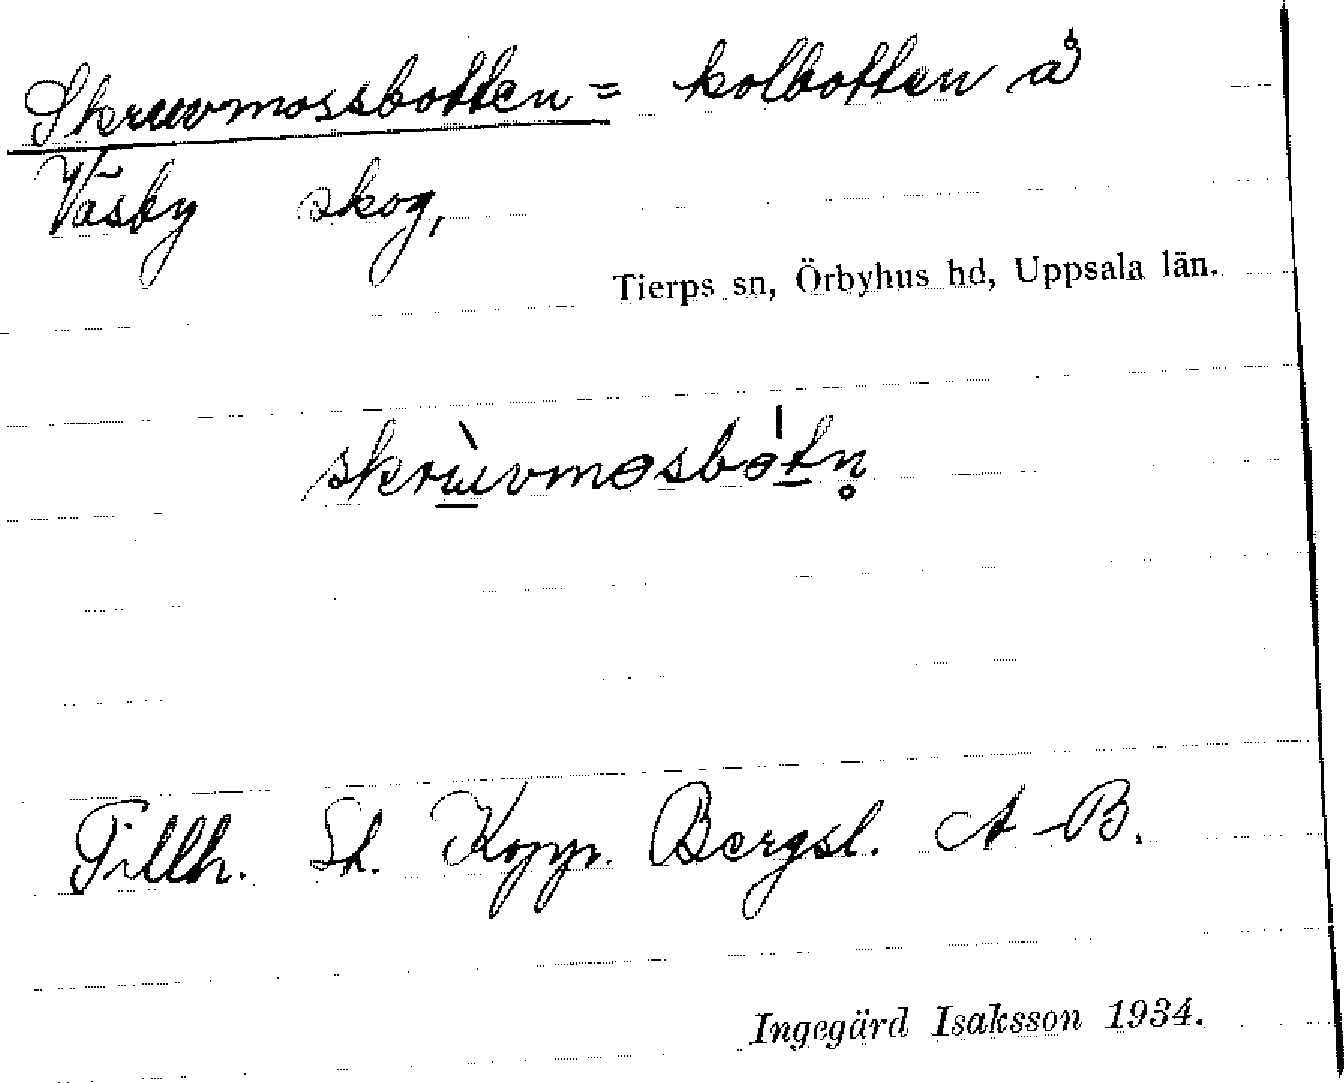 Skruvmossbotten = kolbotten å
Väsby skog,
Tierps sn, Örbyhus hd, Uppsala län.
skrùvmɵsbɵ́tn̥
Tillh. St. Kopp. Bergsl. A-B.
Ingegärd Isaksson 1934.